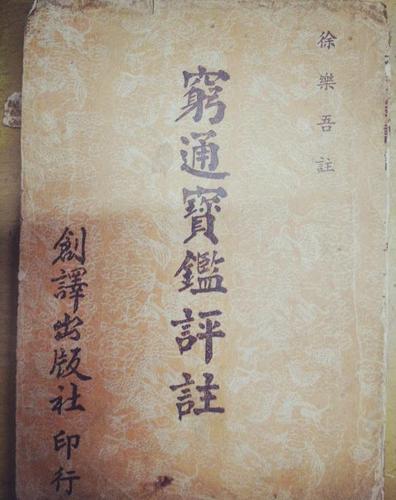 徐樂吾註
窮通寶鑑評註
創譯出版社印行